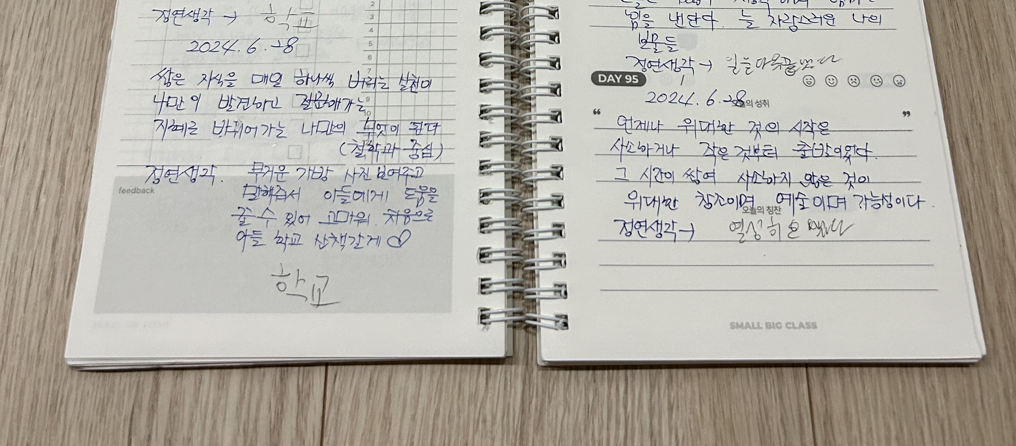 정연생각 → 학교
2024.6.28
쌓은 지식을 매일 하나씩 버리는 발견이
나만의 발견하고 질문해가는
지혜로 바뀌어가는 나만의 무엇이 된다
(철학과 중심)
정연생각. 무거운 가방 사진 보여주고
말해줘서 아들에게 도움을
줄 수 있어 고마워. 처음으로
아들 학교 산책간게 ♡
학교
feedback
힘을 낸다. 늘 자랑스러운 나의
보물들
정연생각 →
DAY 95
2024.6.28
오늘의 성취
“ ”
언제나 위대한 것의 시작은
사소하거나 작은 것부터 출발이었다.
그 시간이 쌓여 사소하지 않은 것이
위대한 창조이며 예술이며 가능성이다.
오늘의 칭찬
정연생각→ 열심히
SMALL BIG CLASS